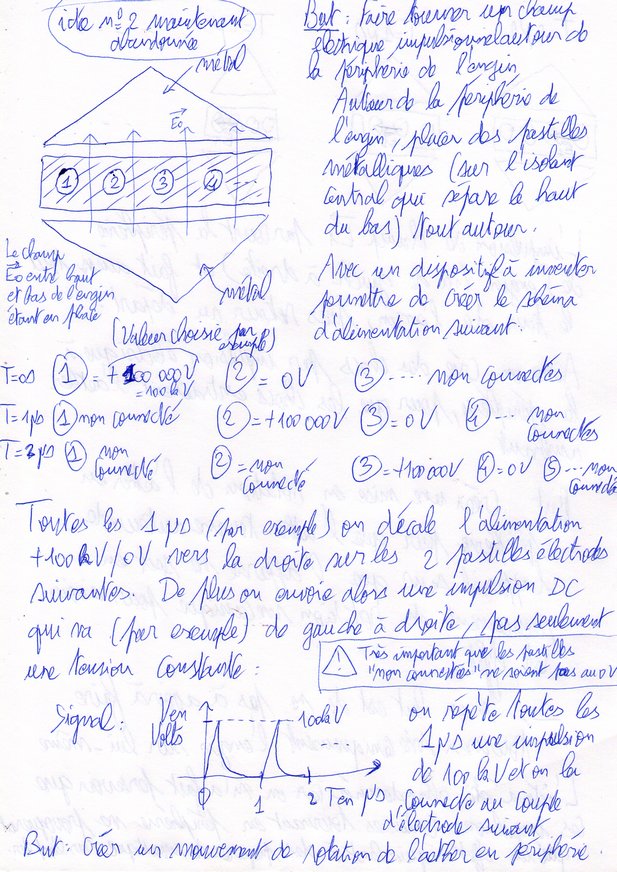 idée n° 2 maintenant
abandonnée
métal
E₀
1 2 3 4 ...
métal
Le champ
E₀ entre haut
et bas de l'engin
étant en place
But : Faire tourner un champ
électrique impulsionnel autour de
la périphérie de l'engin
Autour de la périphérie de
l'engin, placer des pastilles
métalliques (sur l'isolant
central qui sépare le haut
du bas) tout autour.
Avec un dispositif à inventer
permettre de créer le schéma
d'alimentation suivant :
(Valeur choisie par
exemple)
T=0s 1 = +100 000V 2 = 0V 3 .... non connectés
= 100 kV
T=1µs 1 non connecté 2 = +100 000V 3 = 0V 4 ... non
connectés
T=2µs 1 non connecté 2 = non connecté 3 = +100 000V 4 = 0V 5 ... non
connectés
Toutes les 1 µs (par exemple) on décale l'alimentation
+100kV/0V vers la droite sur les 2 pastilles électrodes
suivantes. De plus on envoie alors une impulsion DC
qui va (par exemple) de gauche à droite, pas seulement
une tension constante :
⚠ Très important que les pastilles
"non connectées" ne soient pas au 0V
Signal :
V en
Volts
100kV
0 1 2 T en µs
on répète toutes les
1µs une impulsion
de 100 kV et on la
connecte au couple
d'électrode suivant
But : Créer un mouvement de rotation de l'aether en périphérie.